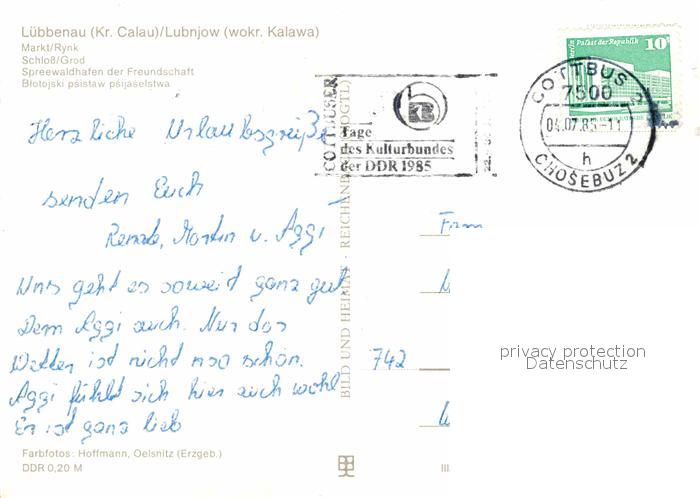 Lübbenau (Kr. Calau)/Lubnjow (wokr. Kalawa)
Markt/Rynk
Schloß/Grod
Spreewaldhafen der Freundschaft
Błotojski pśistaw pśijaśelstwa
Herzliche Urlaubsgrüße
senden Euch
Renate, Martin u. Aggi
Uns geht es soweit ganz gut
Dem Aggi auch. Nur das
Wetter ist nicht so schön.
Aggi fühlt sich hier auch wohl
Er ist ganz lieb
Farbfotos: Hoffmann, Oelsnitz (Erzgeb.)
DDR 0,20 M
BILD UND HEIMAT · REICHENBACH (VOGTL)
III
COTTBUSER
Tage
des Kulturbundes
der DDR 1985
COTTBUS 2
7500
04.07.85-11
h
CHOŚEBUZ 2
Berlin Palast der Republik 10
742
privacy protection
Datenschutz